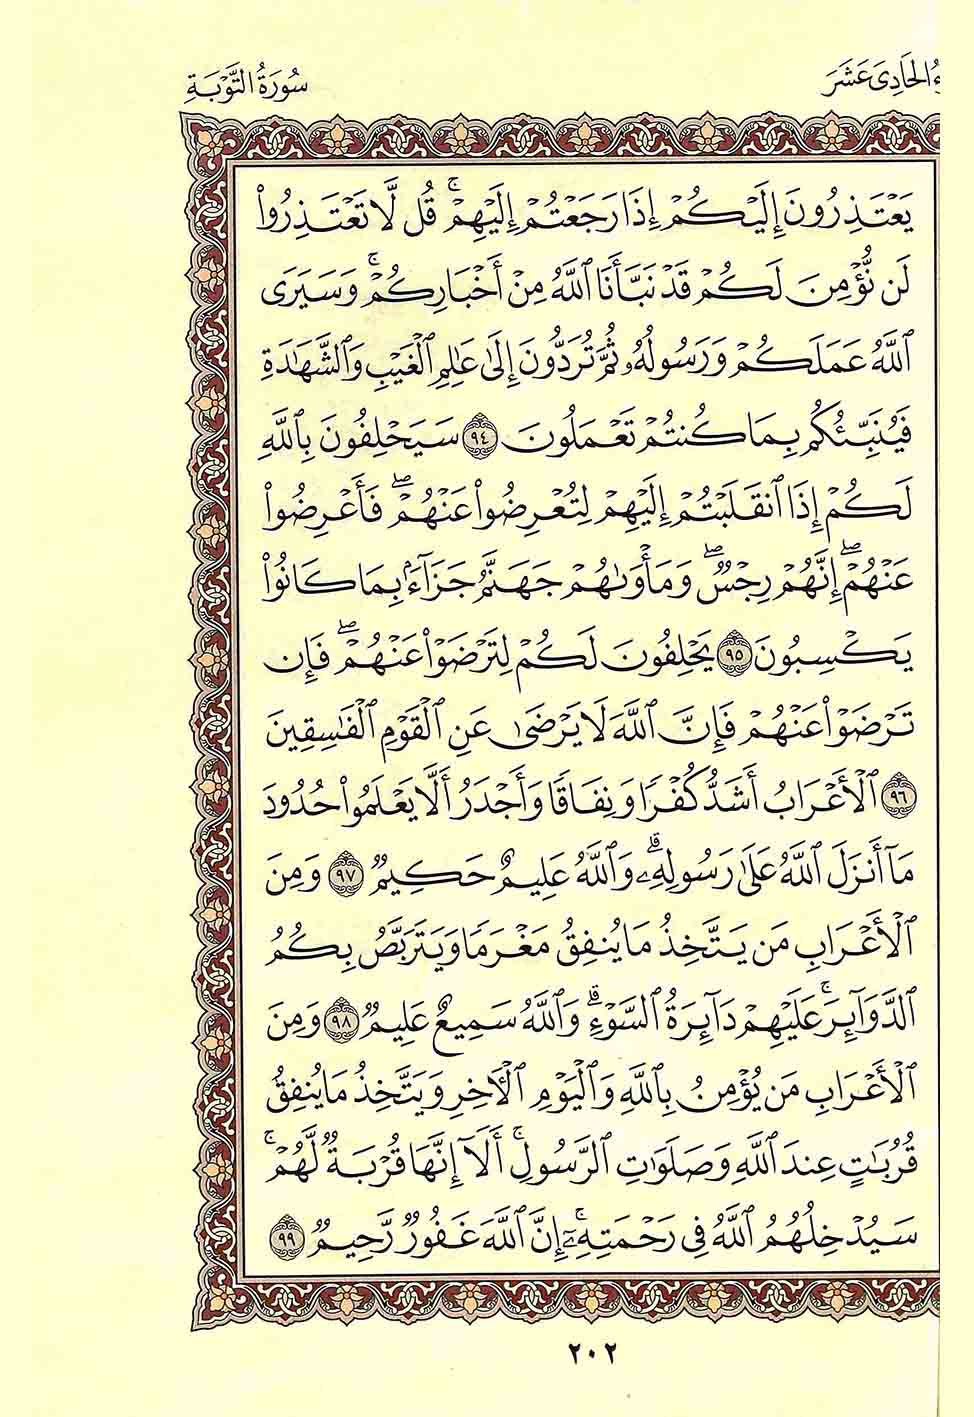 ءُ الحَادِىَ عَشَرَ
سُورَةُ التَّوۡبَةِ
يَعۡتَذِرُونَ إِلَيۡكُمۡ إِذَا رَجَعۡتُمۡ إِلَيۡهِمۡۚ قُل لَّا تَعۡتَذِرُواْ
لَن نُّؤۡمِنَ لَكُمۡ قَدۡ نَبَّأَنَا ٱللَّهُ مِنۡ أَخۡبَارِكُمۡۚ وَسَيَرَى
ٱللَّهُ عَمَلَكُمۡ وَرَسُولُهُۥ ثُمَّ تُرَدُّونَ إِلَىٰ عَٰلِمِ ٱلۡغَيۡبِ وَٱلشَّهَٰدَةِ
فَيُنَبِّئُكُم بِمَا كُنتُمۡ تَعۡمَلُونَ ٩٤ سَيَحۡلِفُونَ بِٱللَّهِ
لَكُمۡ إِذَا ٱنقَلَبۡتُمۡ إِلَيۡهِمۡ لِتُعۡرِضُواْ عَنۡهُمۡۖ فَأَعۡرِضُواْ
عَنۡهُمۡۖ إِنَّهُمۡ رِجۡسٞۖ وَمَأۡوَىٰهُمۡ جَهَنَّمُ جَزَآءَۢ بِمَا كَانُواْ
يَكۡسِبُونَ ٩٥ يَحۡلِفُونَ لَكُمۡ لِتَرۡضَوۡاْ عَنۡهُمۡۖ فَإِن
تَرۡضَوۡاْ عَنۡهُمۡ فَإِنَّ ٱللَّهَ لَا يَرۡضَىٰ عَنِ ٱلۡقَوۡمِ ٱلۡفَٰسِقِينَ
٩٦ ٱلۡأَعۡرَابُ أَشَدُّ كُفۡرٗا وَنِفَاقٗا وَأَجۡدَرُ أَلَّا يَعۡلَمُواْ حُدُودَ
مَآ أَنزَلَ ٱللَّهُ عَلَىٰ رَسُولِهِۦۗ وَٱللَّهُ عَلِيمٌ حَكِيمٞ ٩٧ وَمِنَ
ٱلۡأَعۡرَابِ مَن يَتَّخِذُ مَا يُنفِقُ مَغۡرَمٗا وَيَتَرَبَّصُ بِكُمُ
ٱلدَّوَآئِرَۚ عَلَيۡهِمۡ دَآئِرَةُ ٱلسَّوۡءِۗ وَٱللَّهُ سَمِيعٌ عَلِيمٞ ٩٨ وَمِنَ
ٱلۡأَعۡرَابِ مَن يُؤۡمِنُ بِٱللَّهِ وَٱلۡيَوۡمِ ٱلۡأٓخِرِ وَيَتَّخِذُ مَا يُنفِقُ
قُرُبَٰتٍ عِندَ ٱللَّهِ وَصَلَوَٰتِ ٱلرَّسُولِۚ أَلَآ إِنَّهَا قُرۡبَةٞ لَّهُمۡۚ
سَيُدۡخِلُهُمُ ٱللَّهُ فِي رَحۡمَتِهِۦٓۚ إِنَّ ٱللَّهَ غَفُورٞ رَّحِيمٞ ٩٩
٢٠٢